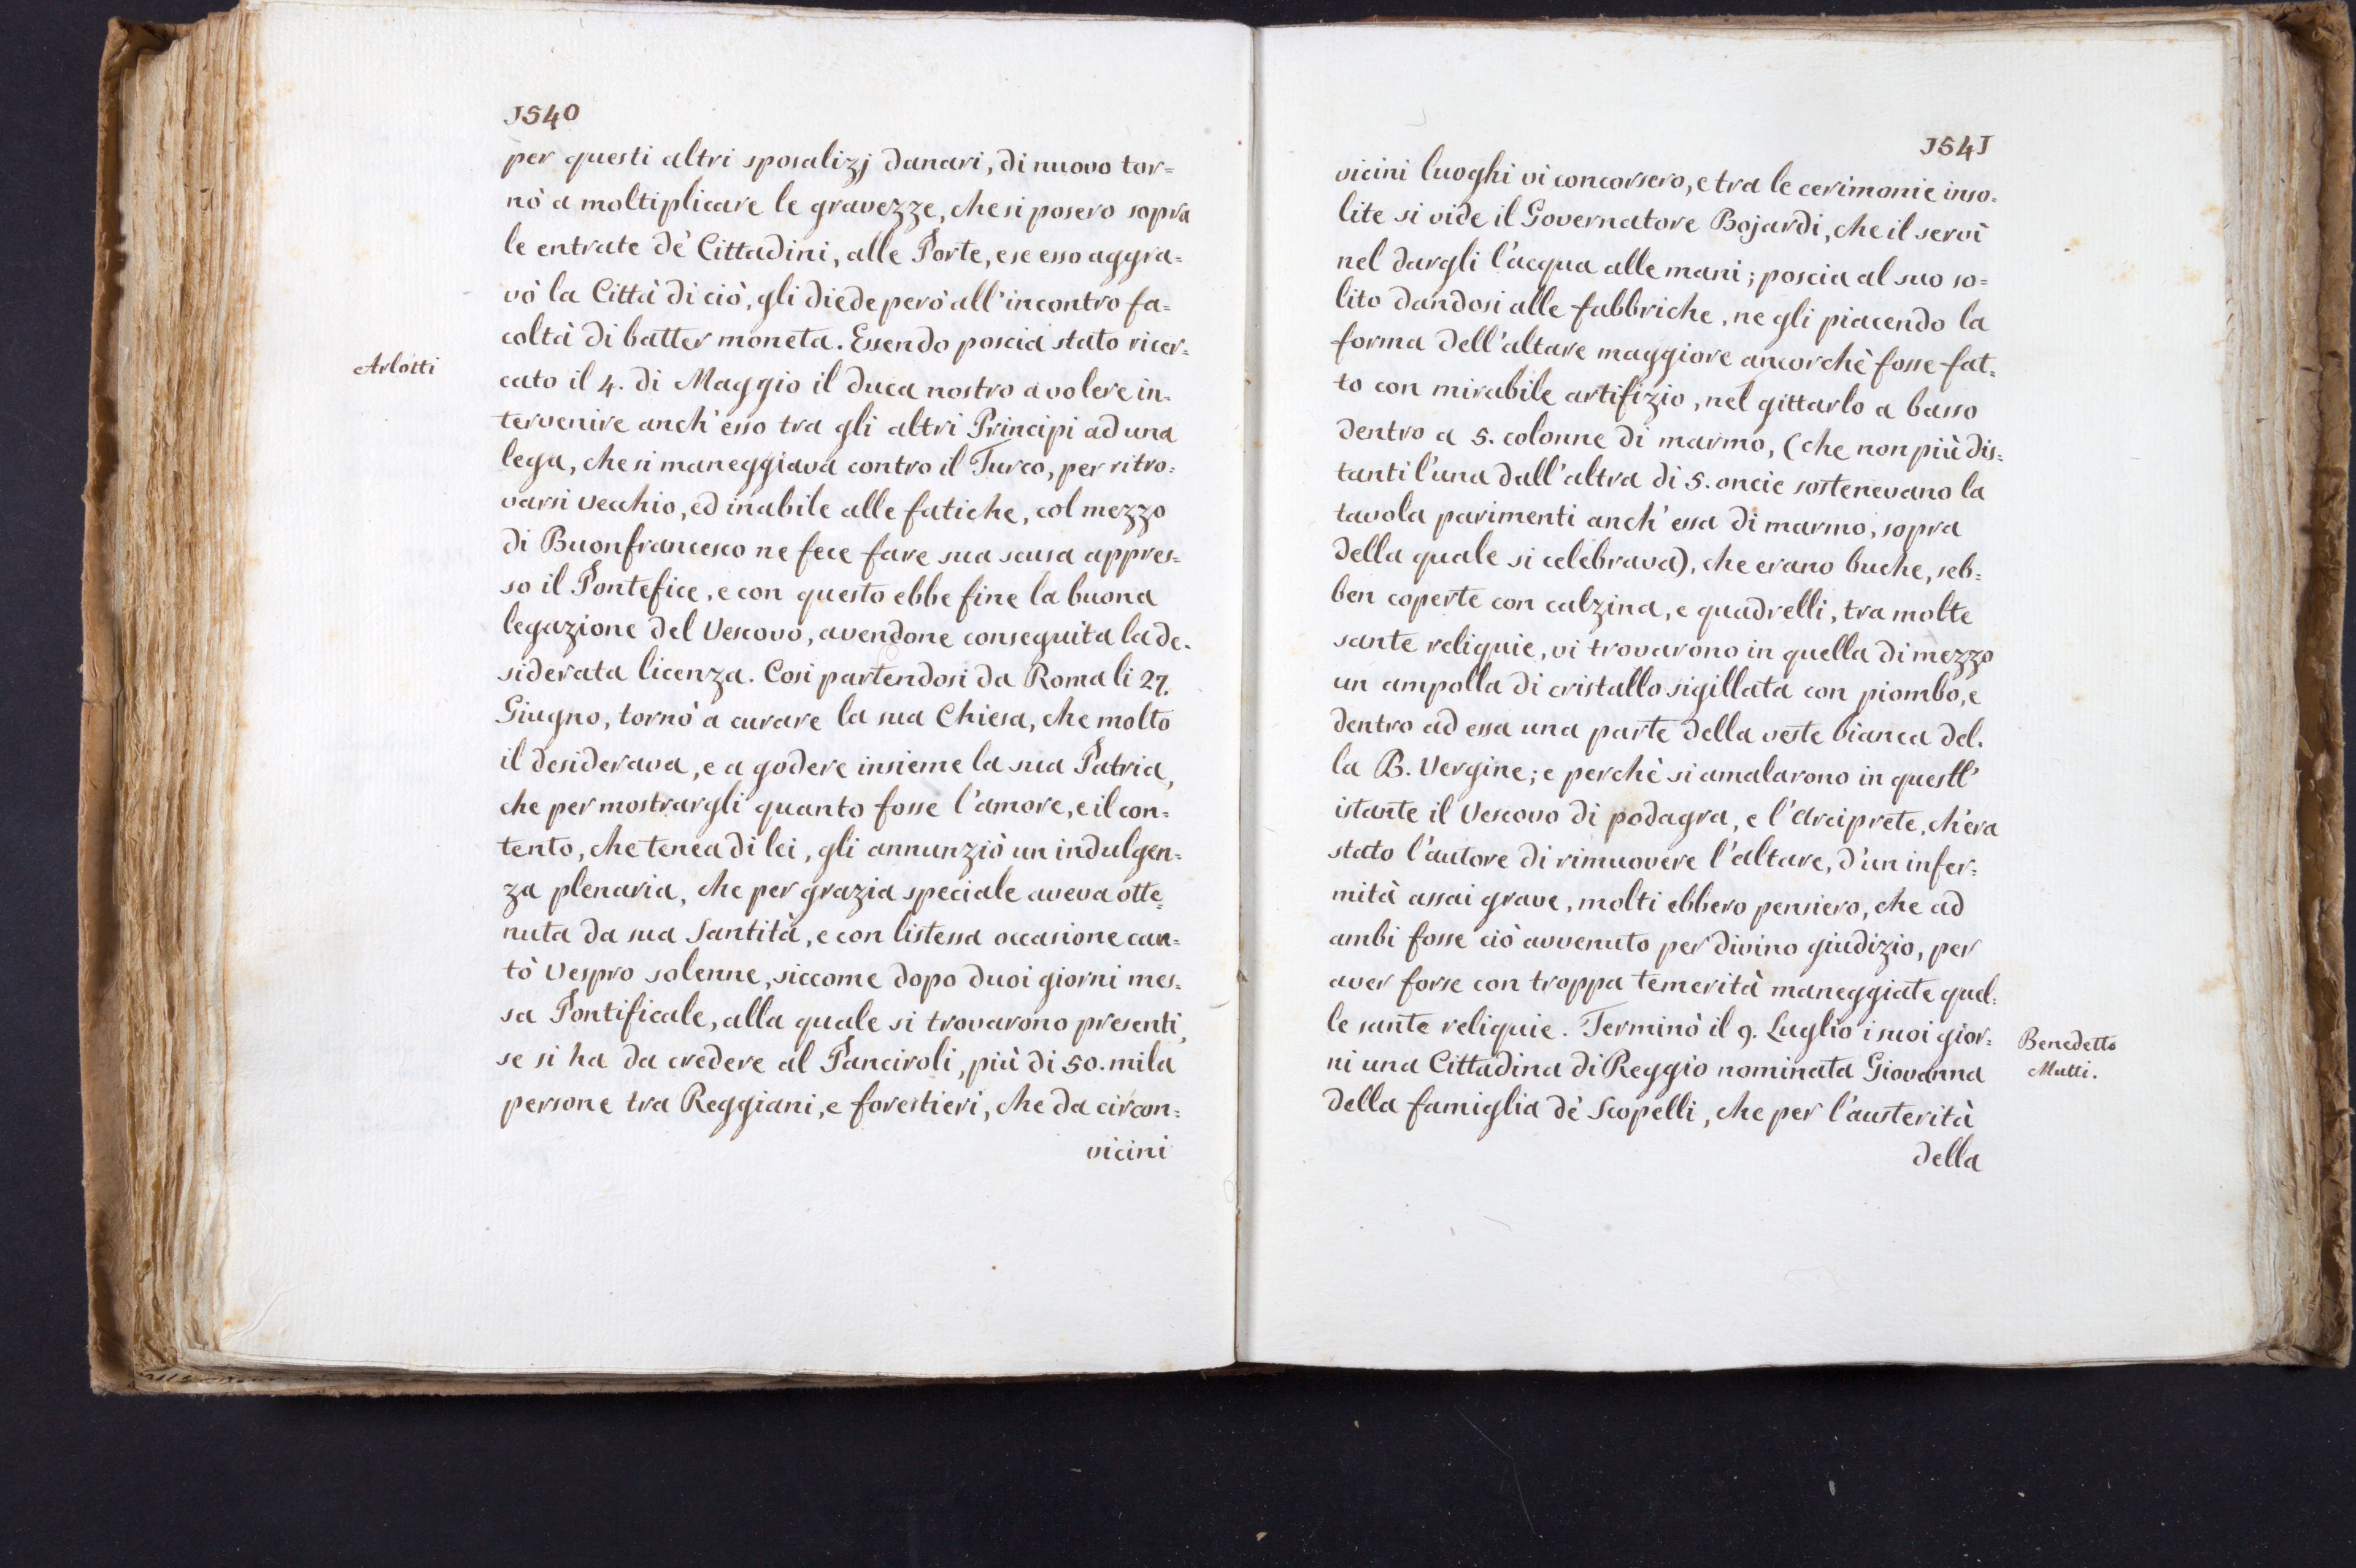 1540
per questi altri sposalizj danari, di nuovo tor=
nò a moltiplicare le gravezze, che si posero sopra
le entrate dè Cittadini, alle Porte, e se esso aggra=
vò la Città di ciò, gli diede però all'incontro fa=
coltà di batter moneta. Essendo poscia stato ricer=
Arlotti
cato il 4. di Maggio il duca nostro a volere in=
tervenire anch'esso tra gli altri Principi ad una
lega, che si maneggiava contro il Turco, per ritro=
varsi vecchio, ed inabile alle fatiche, col mezzo
di Buonfrancesco ne fece fare sua scusa appres=
so il Pontefice, e con questo ebbe fine la buona
legazione del Vescovo, avendone conseguita la de=
siderata licenza. Così partendosi da Roma li 27.
Giugno, tornò a curare la sua Chiesa, che molto
il desiderava, e a godere insieme la sua Patria,
che per mostrargli quanto fosse l'amore, e il con=
tento, che tenea di lei, gli annunziò un indulgen=
za plenaria, che per grazia speciale aveva otte=
nuta da sua Santità, e con listessa occasione can=
tò Vespro solenne, siccome dopo duoi giorni mes=
sa Pontificale, alla quale si trovarono presenti,
se si ha da credere al Panciroli, più di 50. mila
persone tra Reggiani, e forestieri, che da circon=
vicini
1541
vicini luoghi vi concorsero, e tra le cerimonie inso=
lite si vide il Governatore Bojardi, che il servì
nel dargli l'acqua alle mani; poscia al suo so=
lito dandosi alle fabbriche, ne gli piacendo la
forma dell'altare maggiore ancorchè fosse fat=
to con mirabile artifizio, nel gittarlo a basso
dentro a 5. colonne di marmo, (che non più dis=
tanti l'una dall'altra di 5. oncie sostenevano la
tavola parimenti anch'essa di marmo, sopra
della quale si celebrava), che erano buche, seb=
ben coperte con calzina, e quadrelli, tra molte
sante reliquie, vi trovarono in quella di mezzo
un ampolla di cristallo sigillata con piombo, e
dentro ad essa una parte della veste bianca del=
la B. Vergine; e perchè si amalarono in questl'
istante il Vescovo di podagra, e l'Arciprete, ch'era
stato l'autore di rimuovere l'altare, d'un infer=
mità assai grave, molti ebbero pensiero, che ad
ambi fosse ciò avvenuto per divino giudizio, per
aver forse con troppa temerità maneggiate quel=
le sante reliquie. Terminò il 9. Luglio i suoi gior=
Benedetto
ni una Cittadina di Reggio nominata Giovanna
Mutti.
della famiglia dè Scopelli, che per l'austerità
della